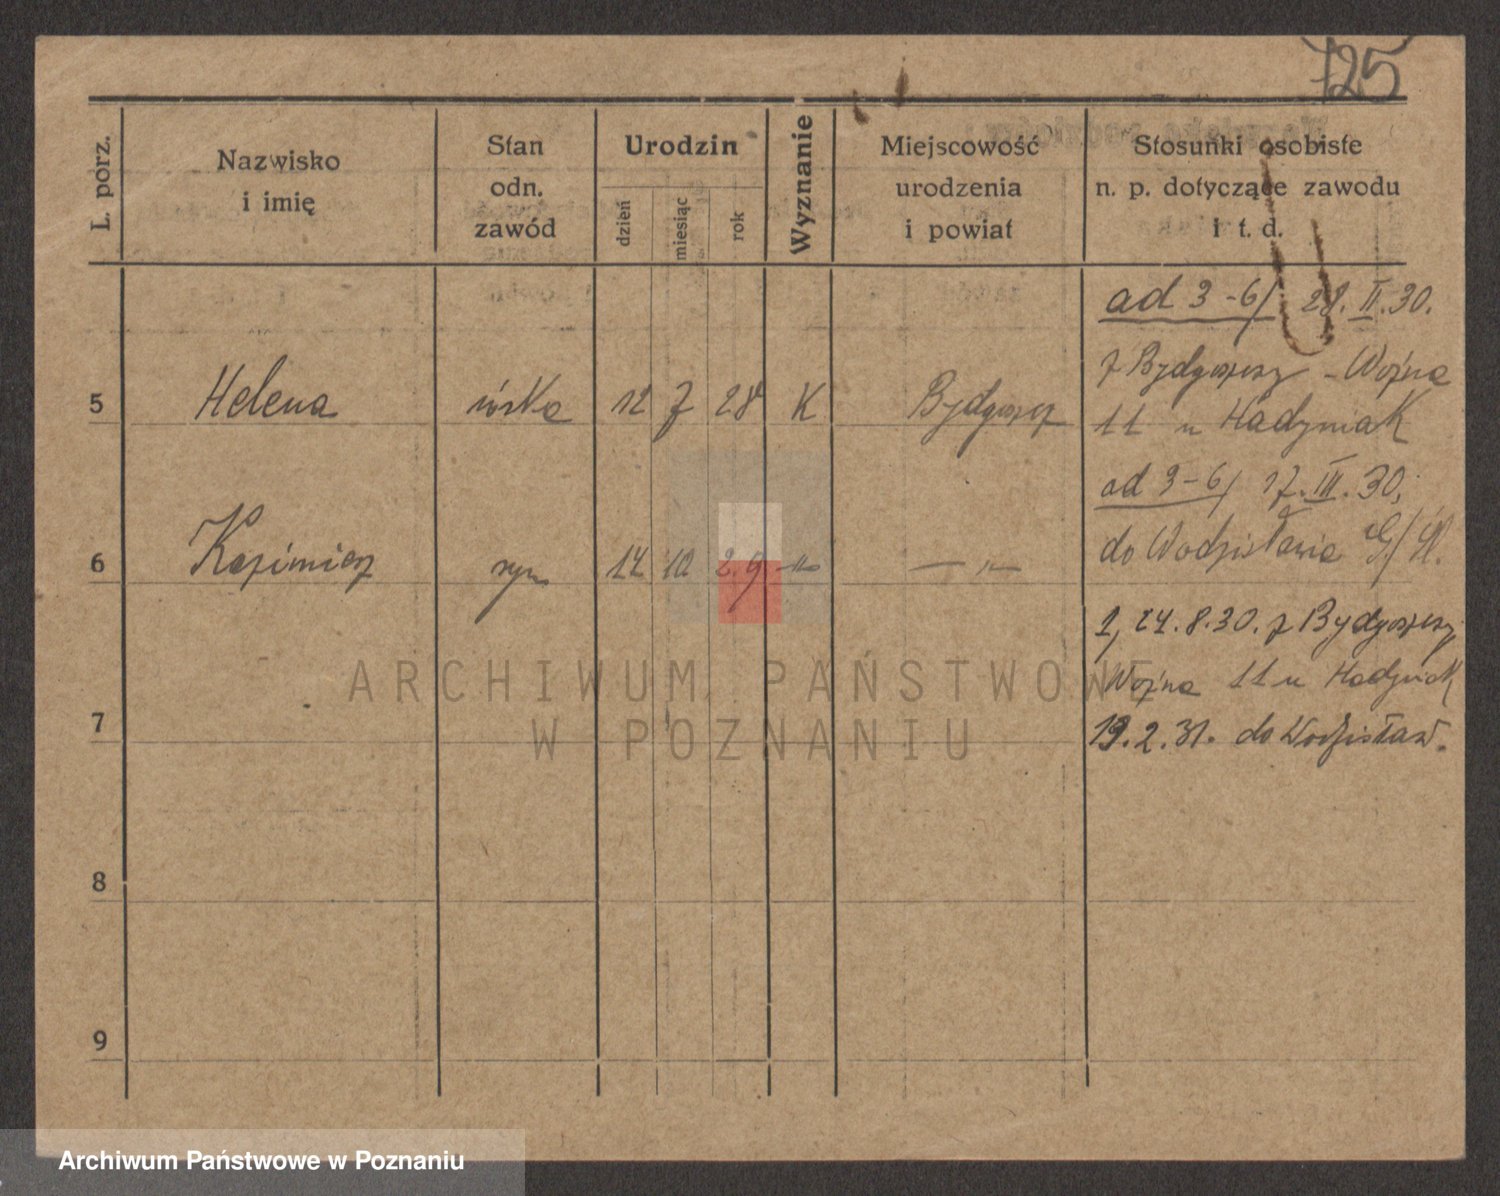 725
L. porz.
Nazwisko
i imię
Stan
odn.
zawód
Urodzin
dzień
miesiąc
rok
Wyznanie
Miejscowość
urodzenia
i powiat
Stosunki osobiste
n. p. dotyczące zawodu
i t. d.
ad 3-6/ 28. II. 30.
z Bydgoszczy - Wojna
11 u Hadyniak
5 Helena córka 12 7 28 K Bydgoszcz
ad 3-6/ 17. III. 30,
do Wodzisławia G/Śl.
6 Kazimierz syn 14 10 29 -"- -"-
1, 24. 8. 30. z Bydgoszczy
Wojna 11 u Hadyniak
19. 2. 31. do Wodzisław.
7
8
9
ARCHIWUM PAŃSTWOWE
W POZNANIU
Archiwum Państwowe w Poznaniu